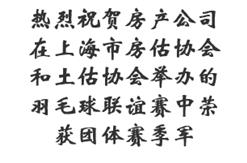 热烈祝贺房产公司
在上海市房估协会
和土估协会举办的
羽毛球联谊赛中荣
获团体赛季军